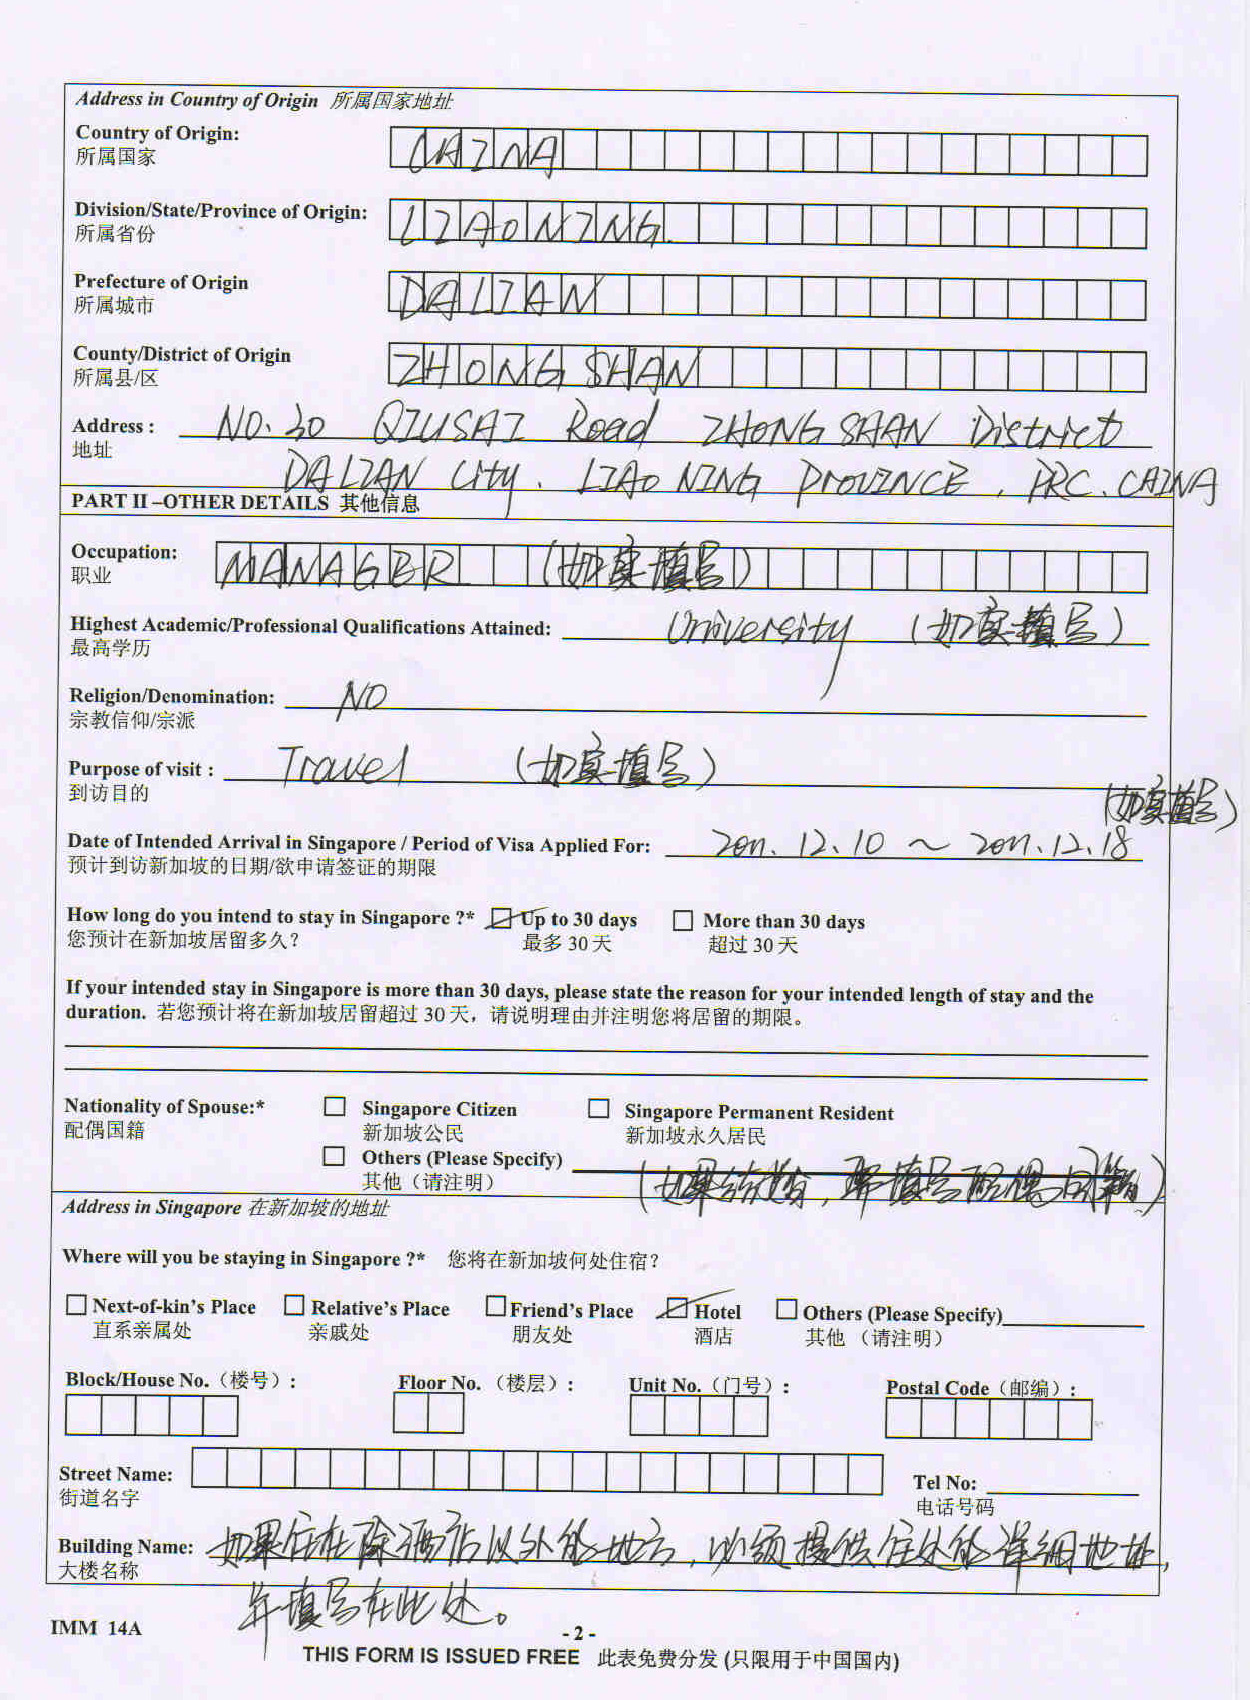 Address in Country of Origin 所属国家地址
Country of Origin: CHINA
所属国家
Division/State/Province of Origin: LIAONING
所属省份
Prefecture of Origin DALIAN
所属城市
County/District of Origin ZHONG SHAN
所属县/区
Address : NO.30 QIUSHI Road ZHONGSHAN District
地址 DALIAN City. LIAONING PROVINCE, PRC. CHINA
PART II –OTHER DETAILS 其他信息
Occupation: MANAGER (如实填写)
职业
Highest Academic/Professional Qualifications Attained: University (如实填写)
最高学历
Religion/Denomination: NO
宗教信仰/宗派
Purpose of visit : Travel (如实填写)
到访目的
(如实填写)
Date of Intended Arrival in Singapore / Period of Visa Applied For: 2011.12.10 ~ 2011.12.18
预计到访新加坡的日期/欲申请签证的期限
How long do you intend to stay in Singapore ?* Up to 30 days More than 30 days
您预计在新加坡居留多久? 最多 30 天 超过 30 天
If your intended stay in Singapore is more than 30 days, please state the reason for your intended length of stay and the
duration. 若您预计将在新加坡居留超过 30 天，请说明理由并注明您将居留的期限。
Nationality of Spouse:* Singapore Citizen Singapore Permanent Resident
配偶国籍 新加坡公民 新加坡永久居民
Others (Please Specify)
其他（请注明） (如果结婚, 要填写配偶国籍)
Address in Singapore 在新加坡的地址
Where will you be staying in Singapore ?* 您将在新加坡何处住宿?
Next-of-kin's Place Relative's Place Friend's Place Hotel Others (Please Specify)
直系亲属处 亲戚处 朋友处 酒店 其他 （请注明）
Block/House No.（楼号）: Floor No. （楼层）: Unit No.（门号）: Postal Code（邮编）:
Street Name: Tel No:
街道名字 电话号码
Building Name: 如果住在除酒店以外的地方, 必须提供住处的详细地址,
大楼名称
并填写在此处。
IMM 14A
- 2 -
THIS FORM IS ISSUED FREE 此表免费分发 (只限用于中国国内)